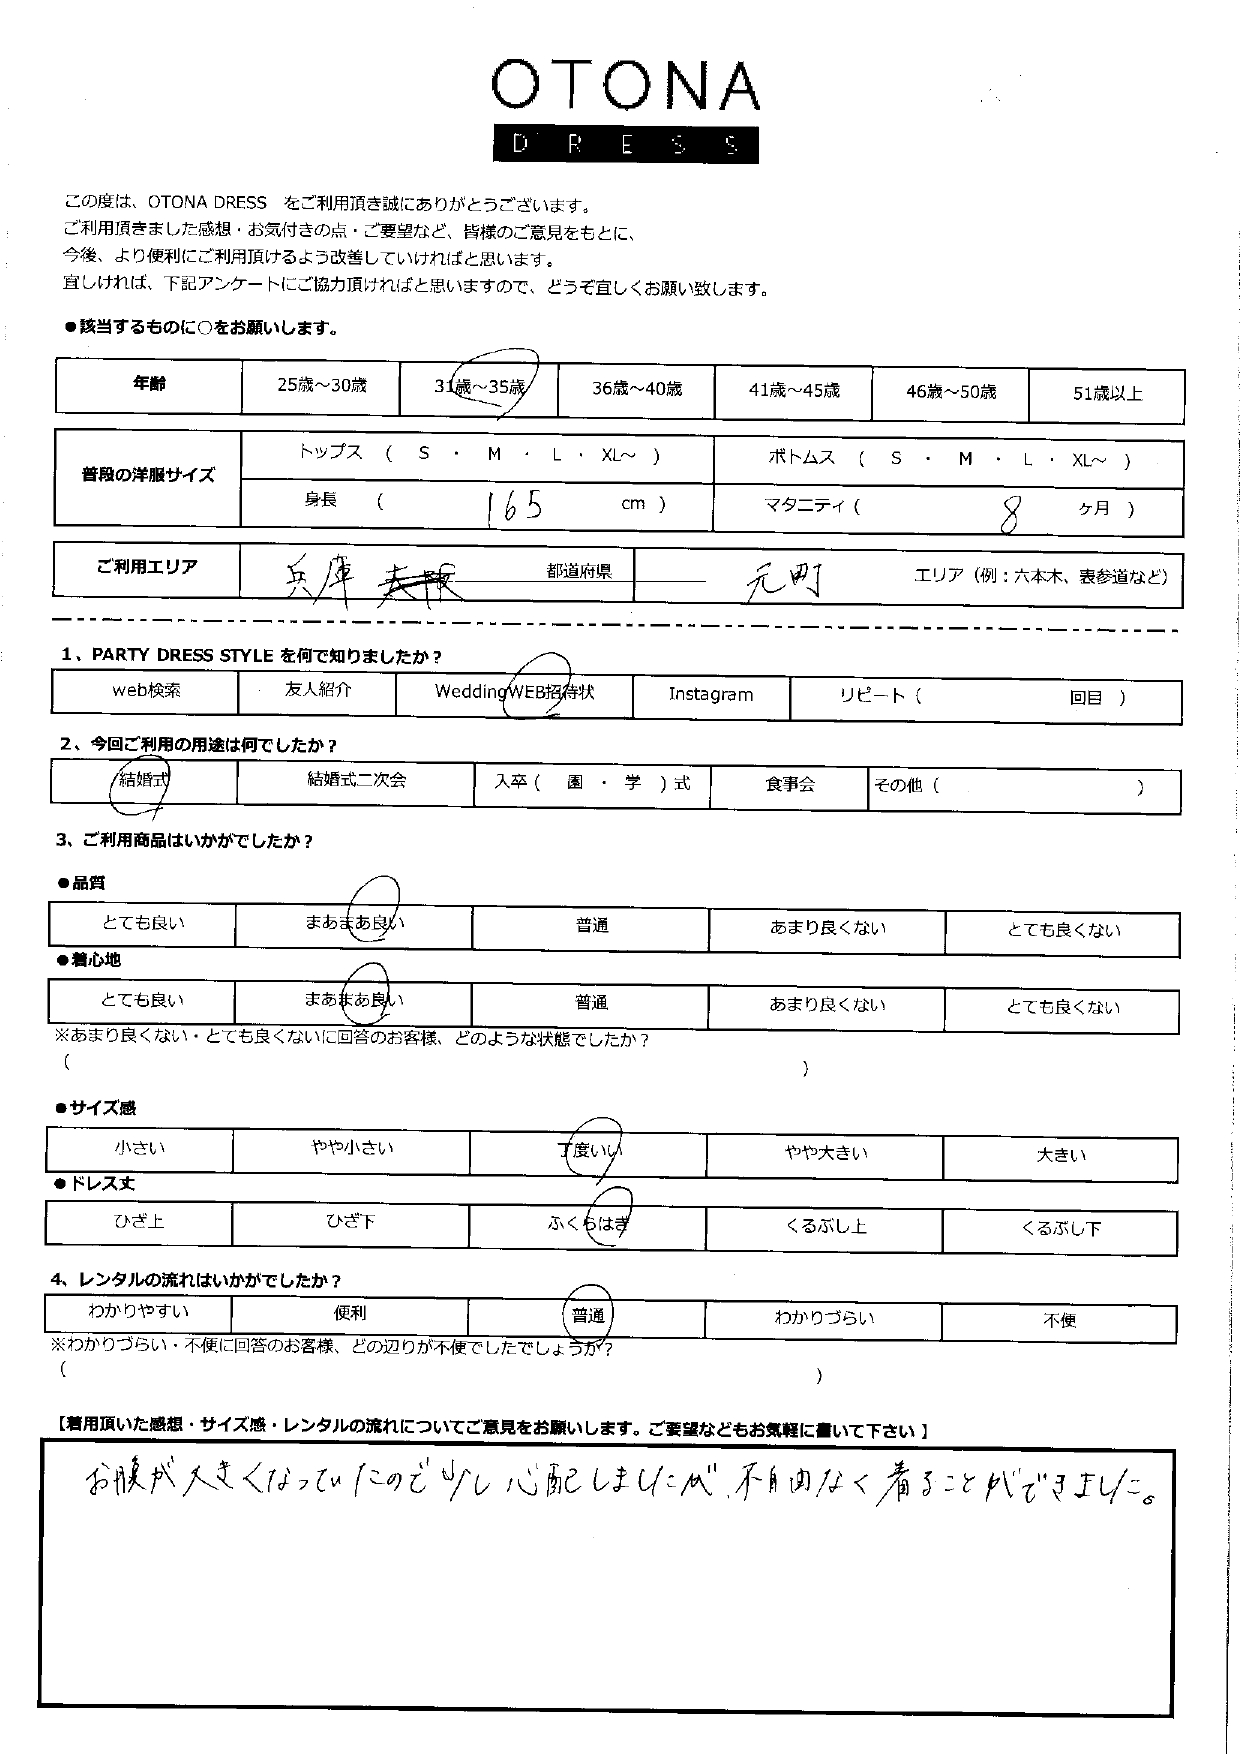 OTONA
DRESS
この度は、OTONA DRESS をご利用頂き誠にありがとうございます。
ご利用頂きました感想・お気付きの点・ご要望など、皆様のご意見をもとに、
今後、より便利にご利用頂けるよう改善していければと思います。
宜しければ、下記アンケートにご協力頂ければと思いますので、どうぞ宜しくお願い致します。
●該当するものに○をお願いします。
年齢 25歳～30歳 31歳～35歳 36歳～40歳 41歳～45歳 46歳～50歳 51歳以上
普段の洋服サイズ トップス ( S ・ M ・ L ・ XL～ ) ボトムス ( S ・ M ・ L ・ XL～ )
身長 ( 165 cm ) マタニティ ( 8 ヶ月 )
ご利用エリア 兵庫 都道府県 元町 エリア（例：六本木、表参道など）
1、PARTY DRESS STYLE を何で知りましたか？
web検索 友人紹介 WeddingWEB招待状 Instagram リピート ( 回目 )
2、今回ご利用の用途は何でしたか？
結婚式 結婚式二次会 入卒 ( 園 ・ 学 ) 式 食事会 その他 ( )
3、ご利用商品はいかがでしたか？
●品質
とても良い まあまあ良い 普通 あまり良くない とても良くない
●着心地
とても良い まあまあ良い 普通 あまり良くない とても良くない
※あまり良くない・とても良くないに回答のお客様、どのような状態でしたか？
( )
●サイズ感
小さい やや小さい 丁度いい やや大きい 大きい
●ドレス丈
ひざ上 ひざ下 ふくらはぎ くるぶし上 くるぶし下
4、レンタルの流れはいかがでしたか？
わかりやすい 便利 普通 わかりづらい 不便
※わかりづらい・不便に回答のお客様、どの辺りが不便でしたでしょうか？
( )
【着用頂いた感想・サイズ感・レンタルの流れについてご意見をお願いします。ご要望などもお気軽に書いて下さい】
お腹が大きくなっていたので少し心配しましたが、不自由なく着ることができました。